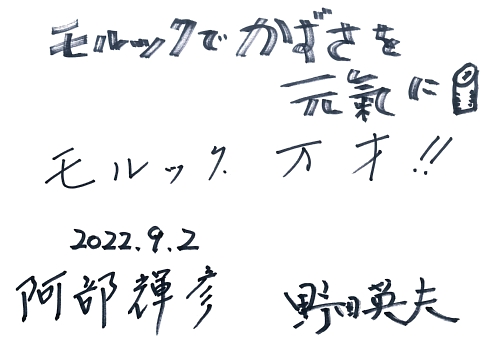 モルックでかずさを
元氣に
モルック 万才!!
2022.9.2
阿部輝彦 野田英夫